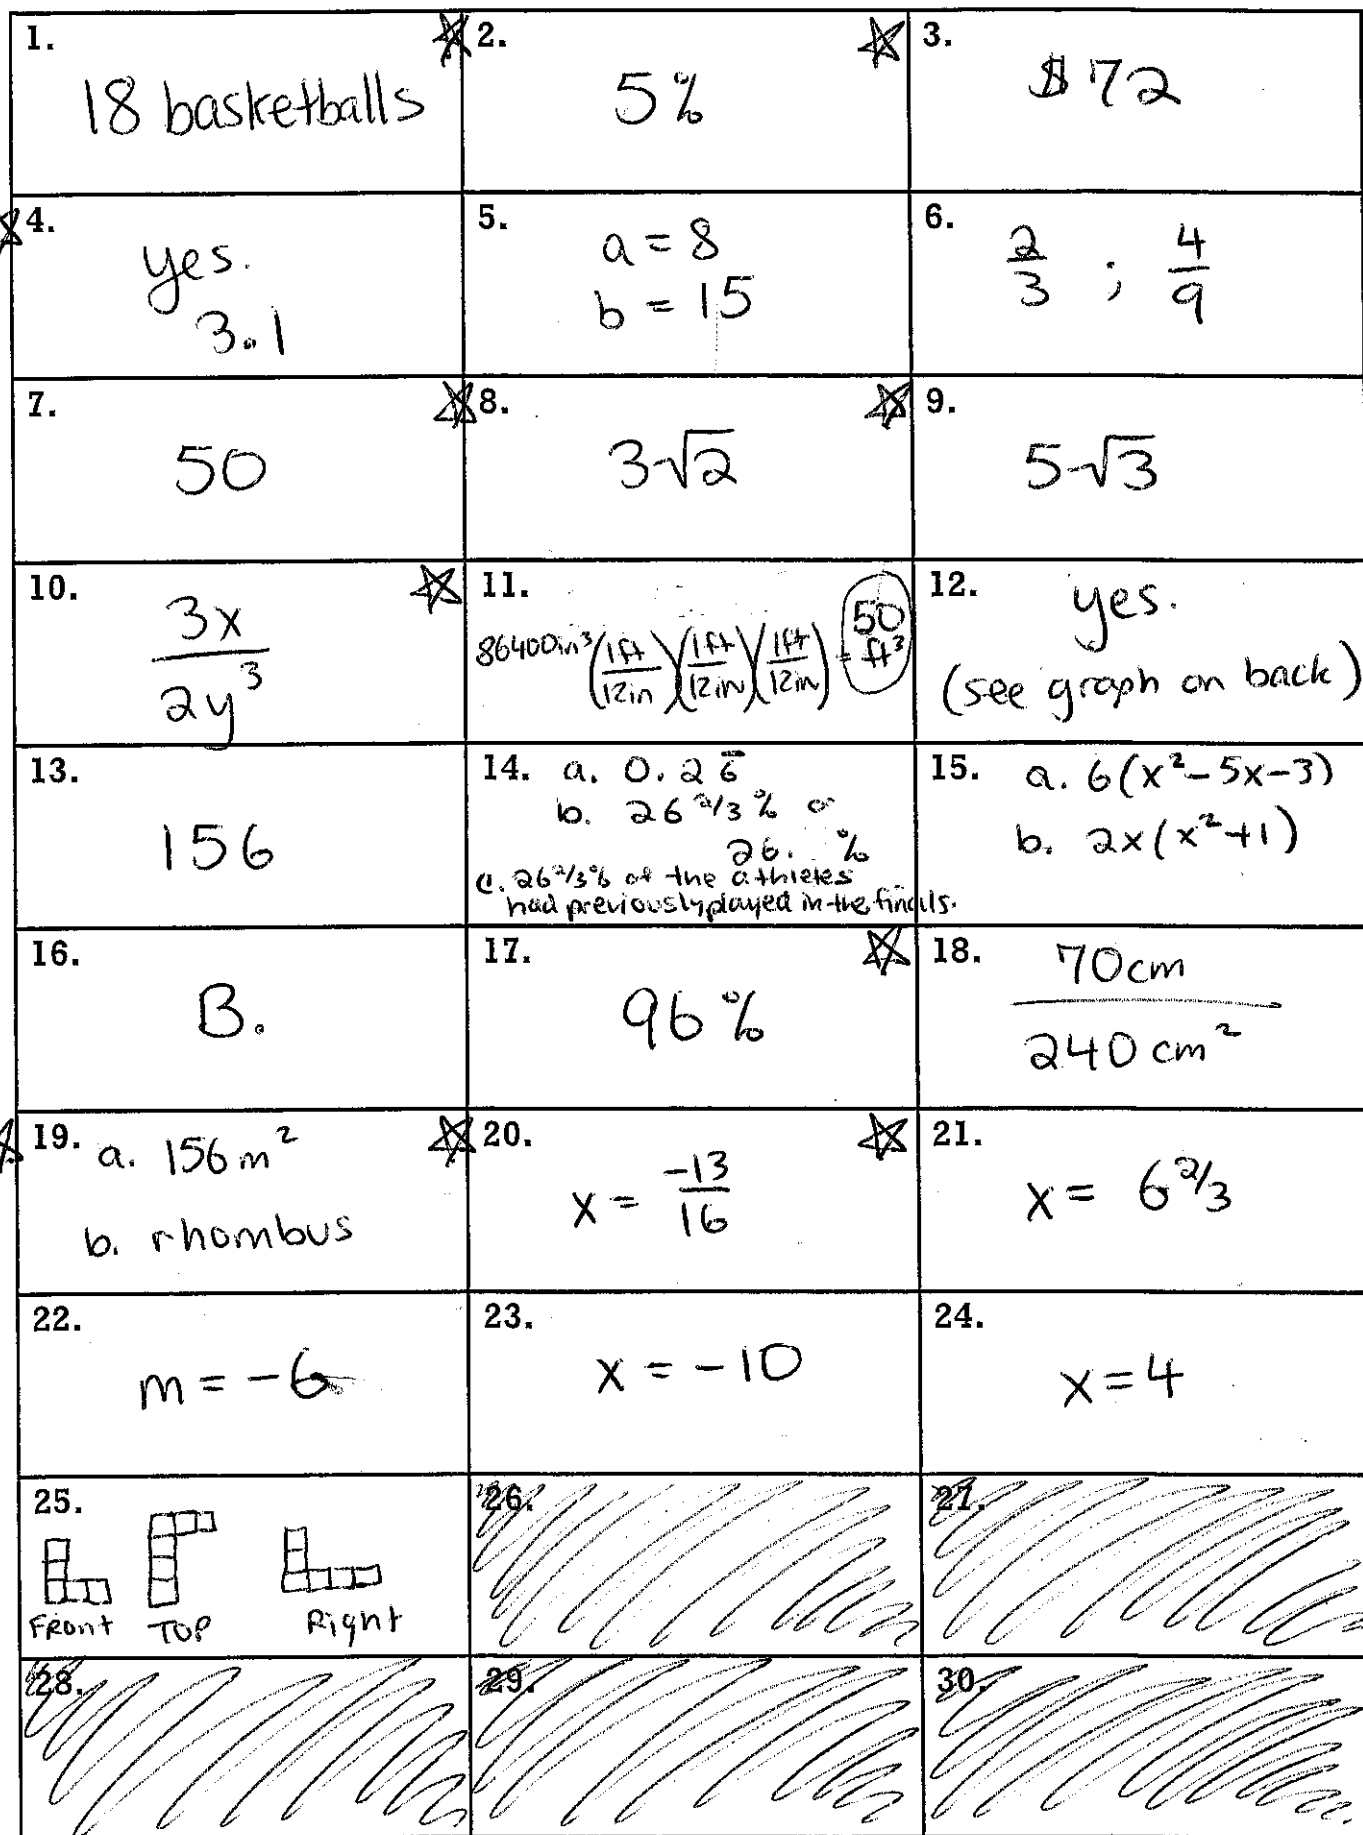 1.
18 basketballs
2.
5%
3.
$72
4.
yes.
3.1
5.
a = 8
b = 15
6.
2/3 ; 4/9
7.
50
8.
3√2
9.
5√3
10.
3x/2y³
11.
86400in³(1ft/12in)(1ft/12in)(1ft/12in) = 50 ft³
12.
yes.
(see graph on back)
13.
156
14. a. 0.26̅
b. 26 2/3 % or
26. %
c. 26 2/3 % of the athletes
had previously played in the finals.
15. a. 6(x²-5x-3)
b. 2x(x²+1)
16.
B.
17.
96%
18.
70cm/240cm²
19. a. 156m²
b. rhombus
20.
x = -13/16
21.
x = 6 2/3
22.
m = -6
23.
x = -10
24.
x = 4
25.
Front TOP Right
26.
27.
28.
29.
30.